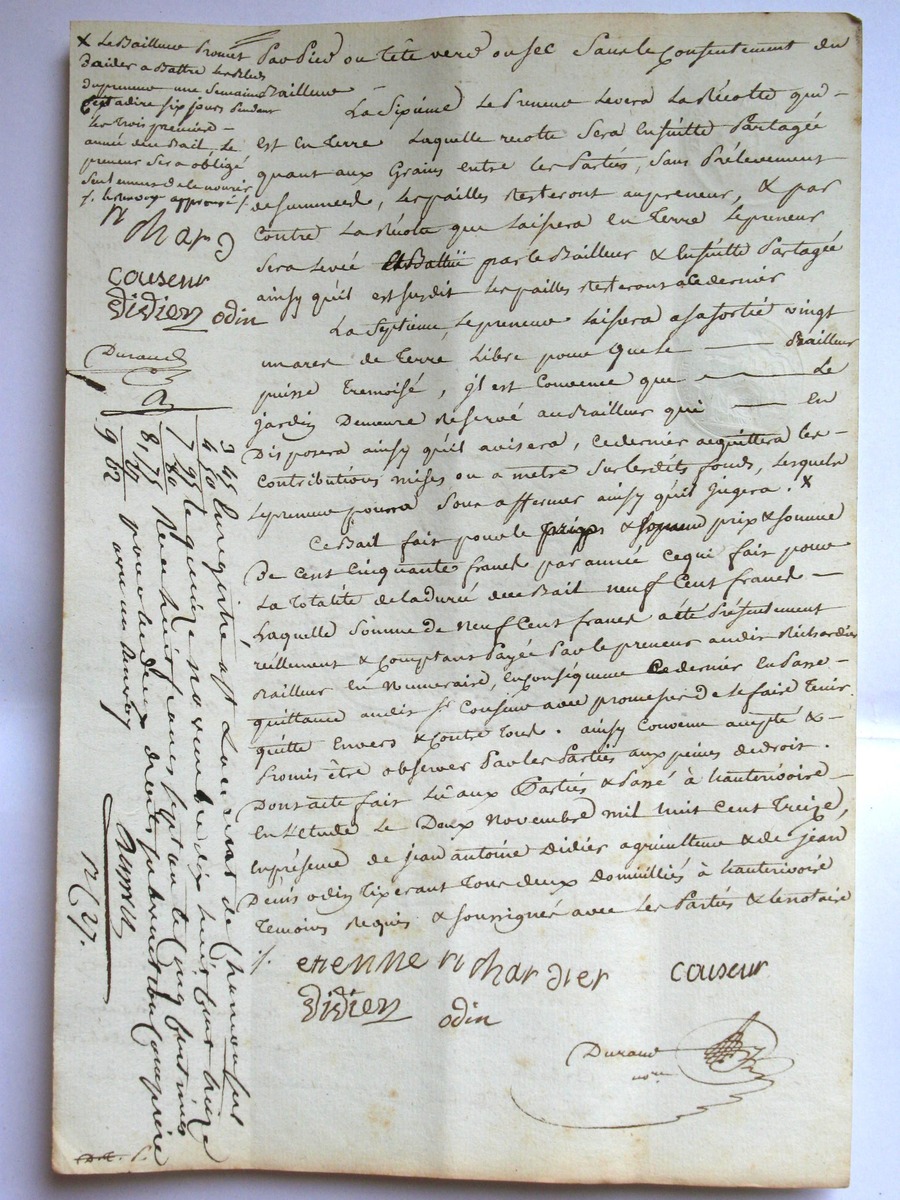 x Le Bailleur Promet
d'aider a Battre les Bleds
du preneur une Semaine
C'est adire six jours Pendant
les trois premiere
année du Bail, le
preneur Sera obligé
Seulement de le nourir
/. le renvoy approuvé /.
richard
couseur
Didier odin
Durand
Par Pied ou tête verd ou sec Sans le Consentement du
Bailleur
La Sixiéme Le Preneur Levera La Récolte qui
est en Terre Laquelle recolte Sera Ensuitte Partagée
quant aux Grains entre les Parties, Sans Prélevement
de Semences, les pailles Resteront au preneur, & par
Contre La Récolte que Laissera en Terre Le preneur
Sera Levée et Battue par le Bailleur & Ensuitte Partagée
ainsy qu'il est susdit les pailles resteront a ce dernier
La Septieme, Le preneur Laissera a sa sortie vingt
mares de Terre Libre pour que le Bailleur
puisse Tremoisé, il est Convenu que Le
jardin Demeure Réservé au Bailleur qui En
Disposera ainsy qu'il avisera, ce dernier acquittera les
Contributions mises ou a metre Sur lesdits fonds, Lesquels
Le preneur pourra Sous affermer ainsy qu'il Jugera. x
Ce Bail fait pour le prix & somme prix & Somme
De Cent Cinquante francs par année ce qui fait pour
La Totalité de la durée du Bail neuf Cent francs
Laquelle Somme de Neuf Cent francs a été Présentement
réellement & Comptant Payée Par le preneur audit Richardier
Bailleur En Numeraire, En conséquence Ce dernier En Passe
quittance audit Sr. Couseur avec promesse de le faire Tenir
quitte Envers & Contre Tous. ainsy Convenu accepté &
Promis être observé Par les Parties aux peines de droit.
Dont acte fait Lû aux Parties & Passé à hauterivoire
En L'Etude Le Deux Novembre mil huit Cent Treize,
En présence de jean antoine Didier agriculteur & de jean
Denis odin Tixerant Tous deux Domiciliés à hauterivoire
Temoins Requis & soussignés avec Les Parties & le notaire
/. etienne richardier couseur
Didier odin
Durand
nore
3 45
4 50
7 95
80
8, 75
87
9 62
Enregistré a St Laurent de Chamousset
le quinze novembre dix huit cent treize
Reçu huit francs soixante quinze centimes
pour les deux droits